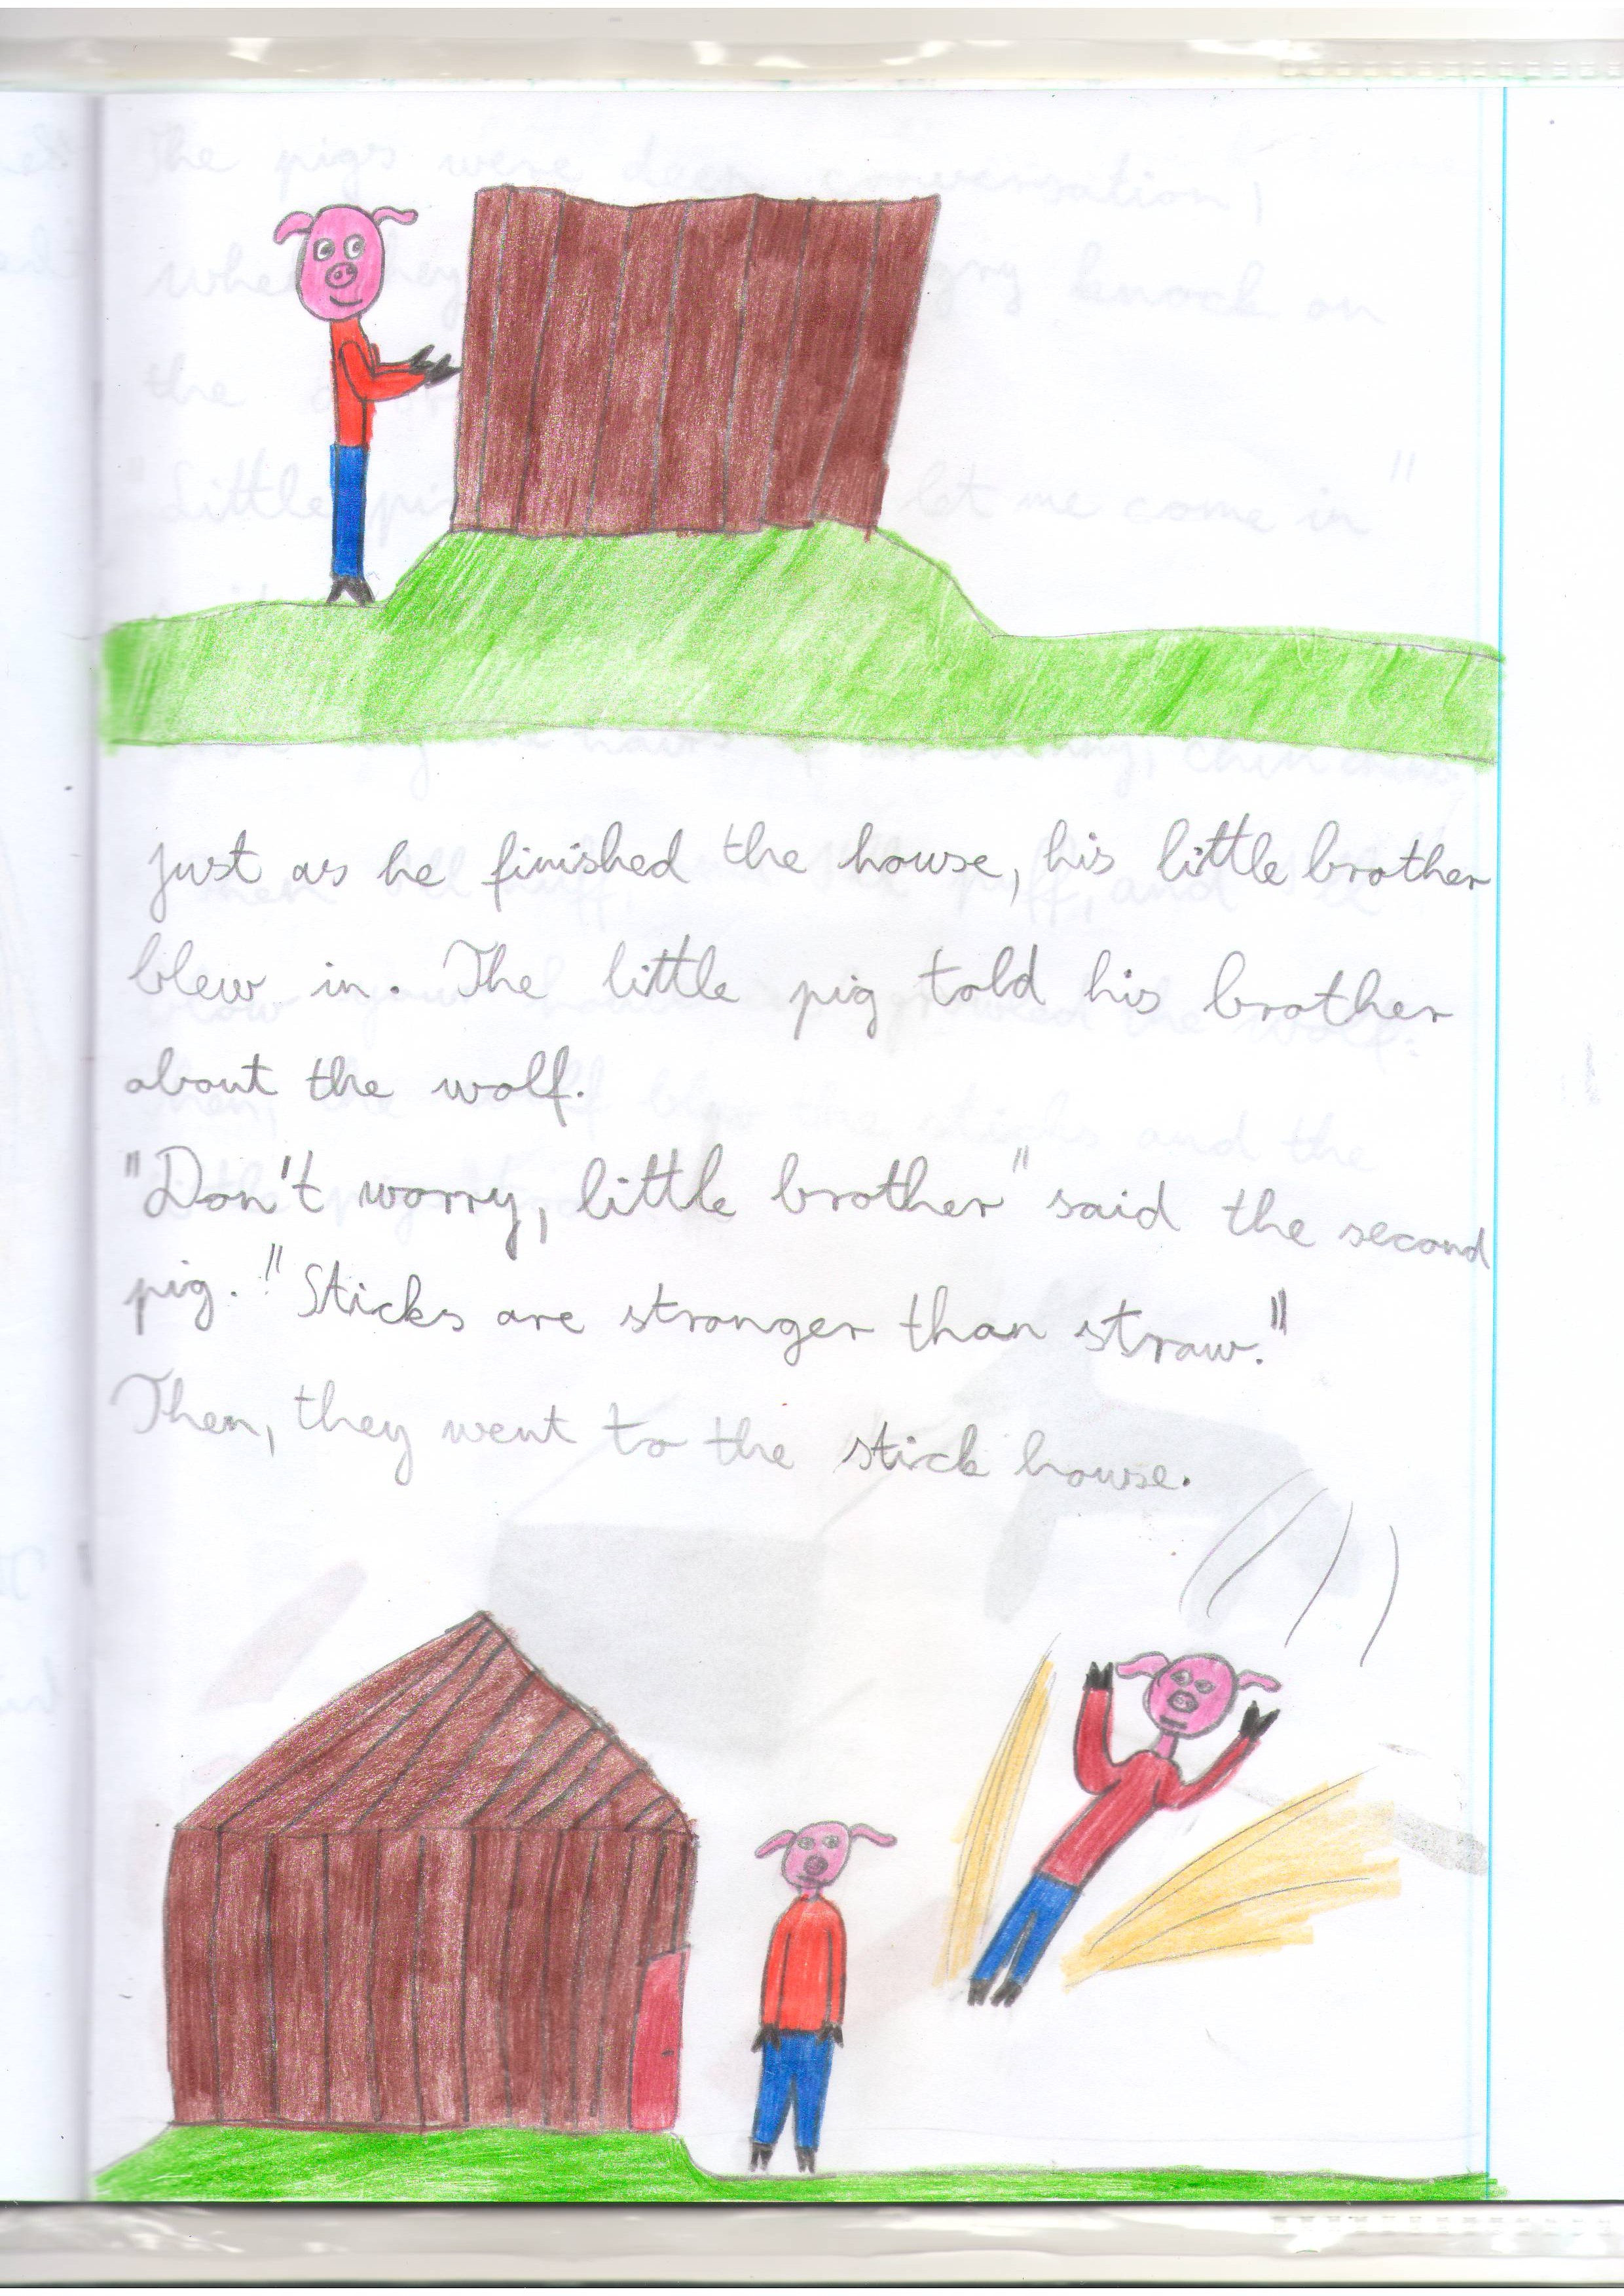 just as he finished the house, his little brother
blew in. The little pig told his brother
about the wolf.
"Don't worry, little brother" said the second
pig. "Sticks are stronger than straw."
Then, they went to the stick house.